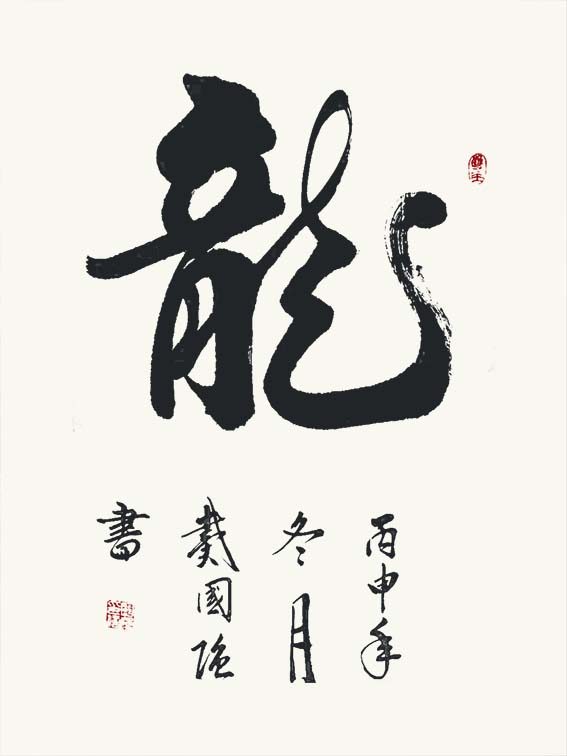 龍
丙申年
冬月
戴國強
書